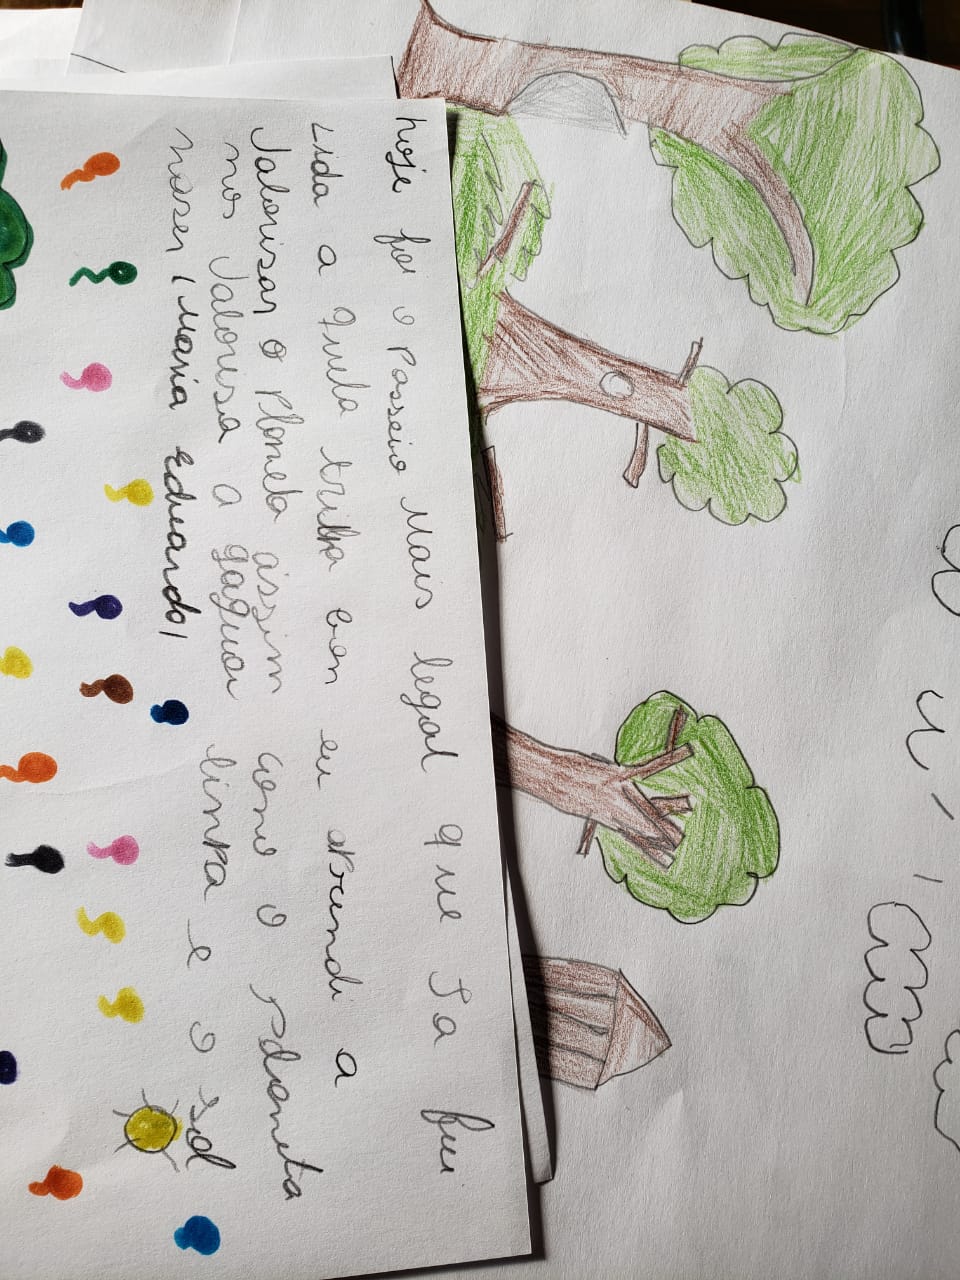 hoje foi o Passeio Mais legal que Ja fui
Lida a Quela trilha con eu aprundi a
Valorisar o Planeta assim como o planeta
nos Valorisa a gaguar linpa e o sol
naser (Maria eduarda)